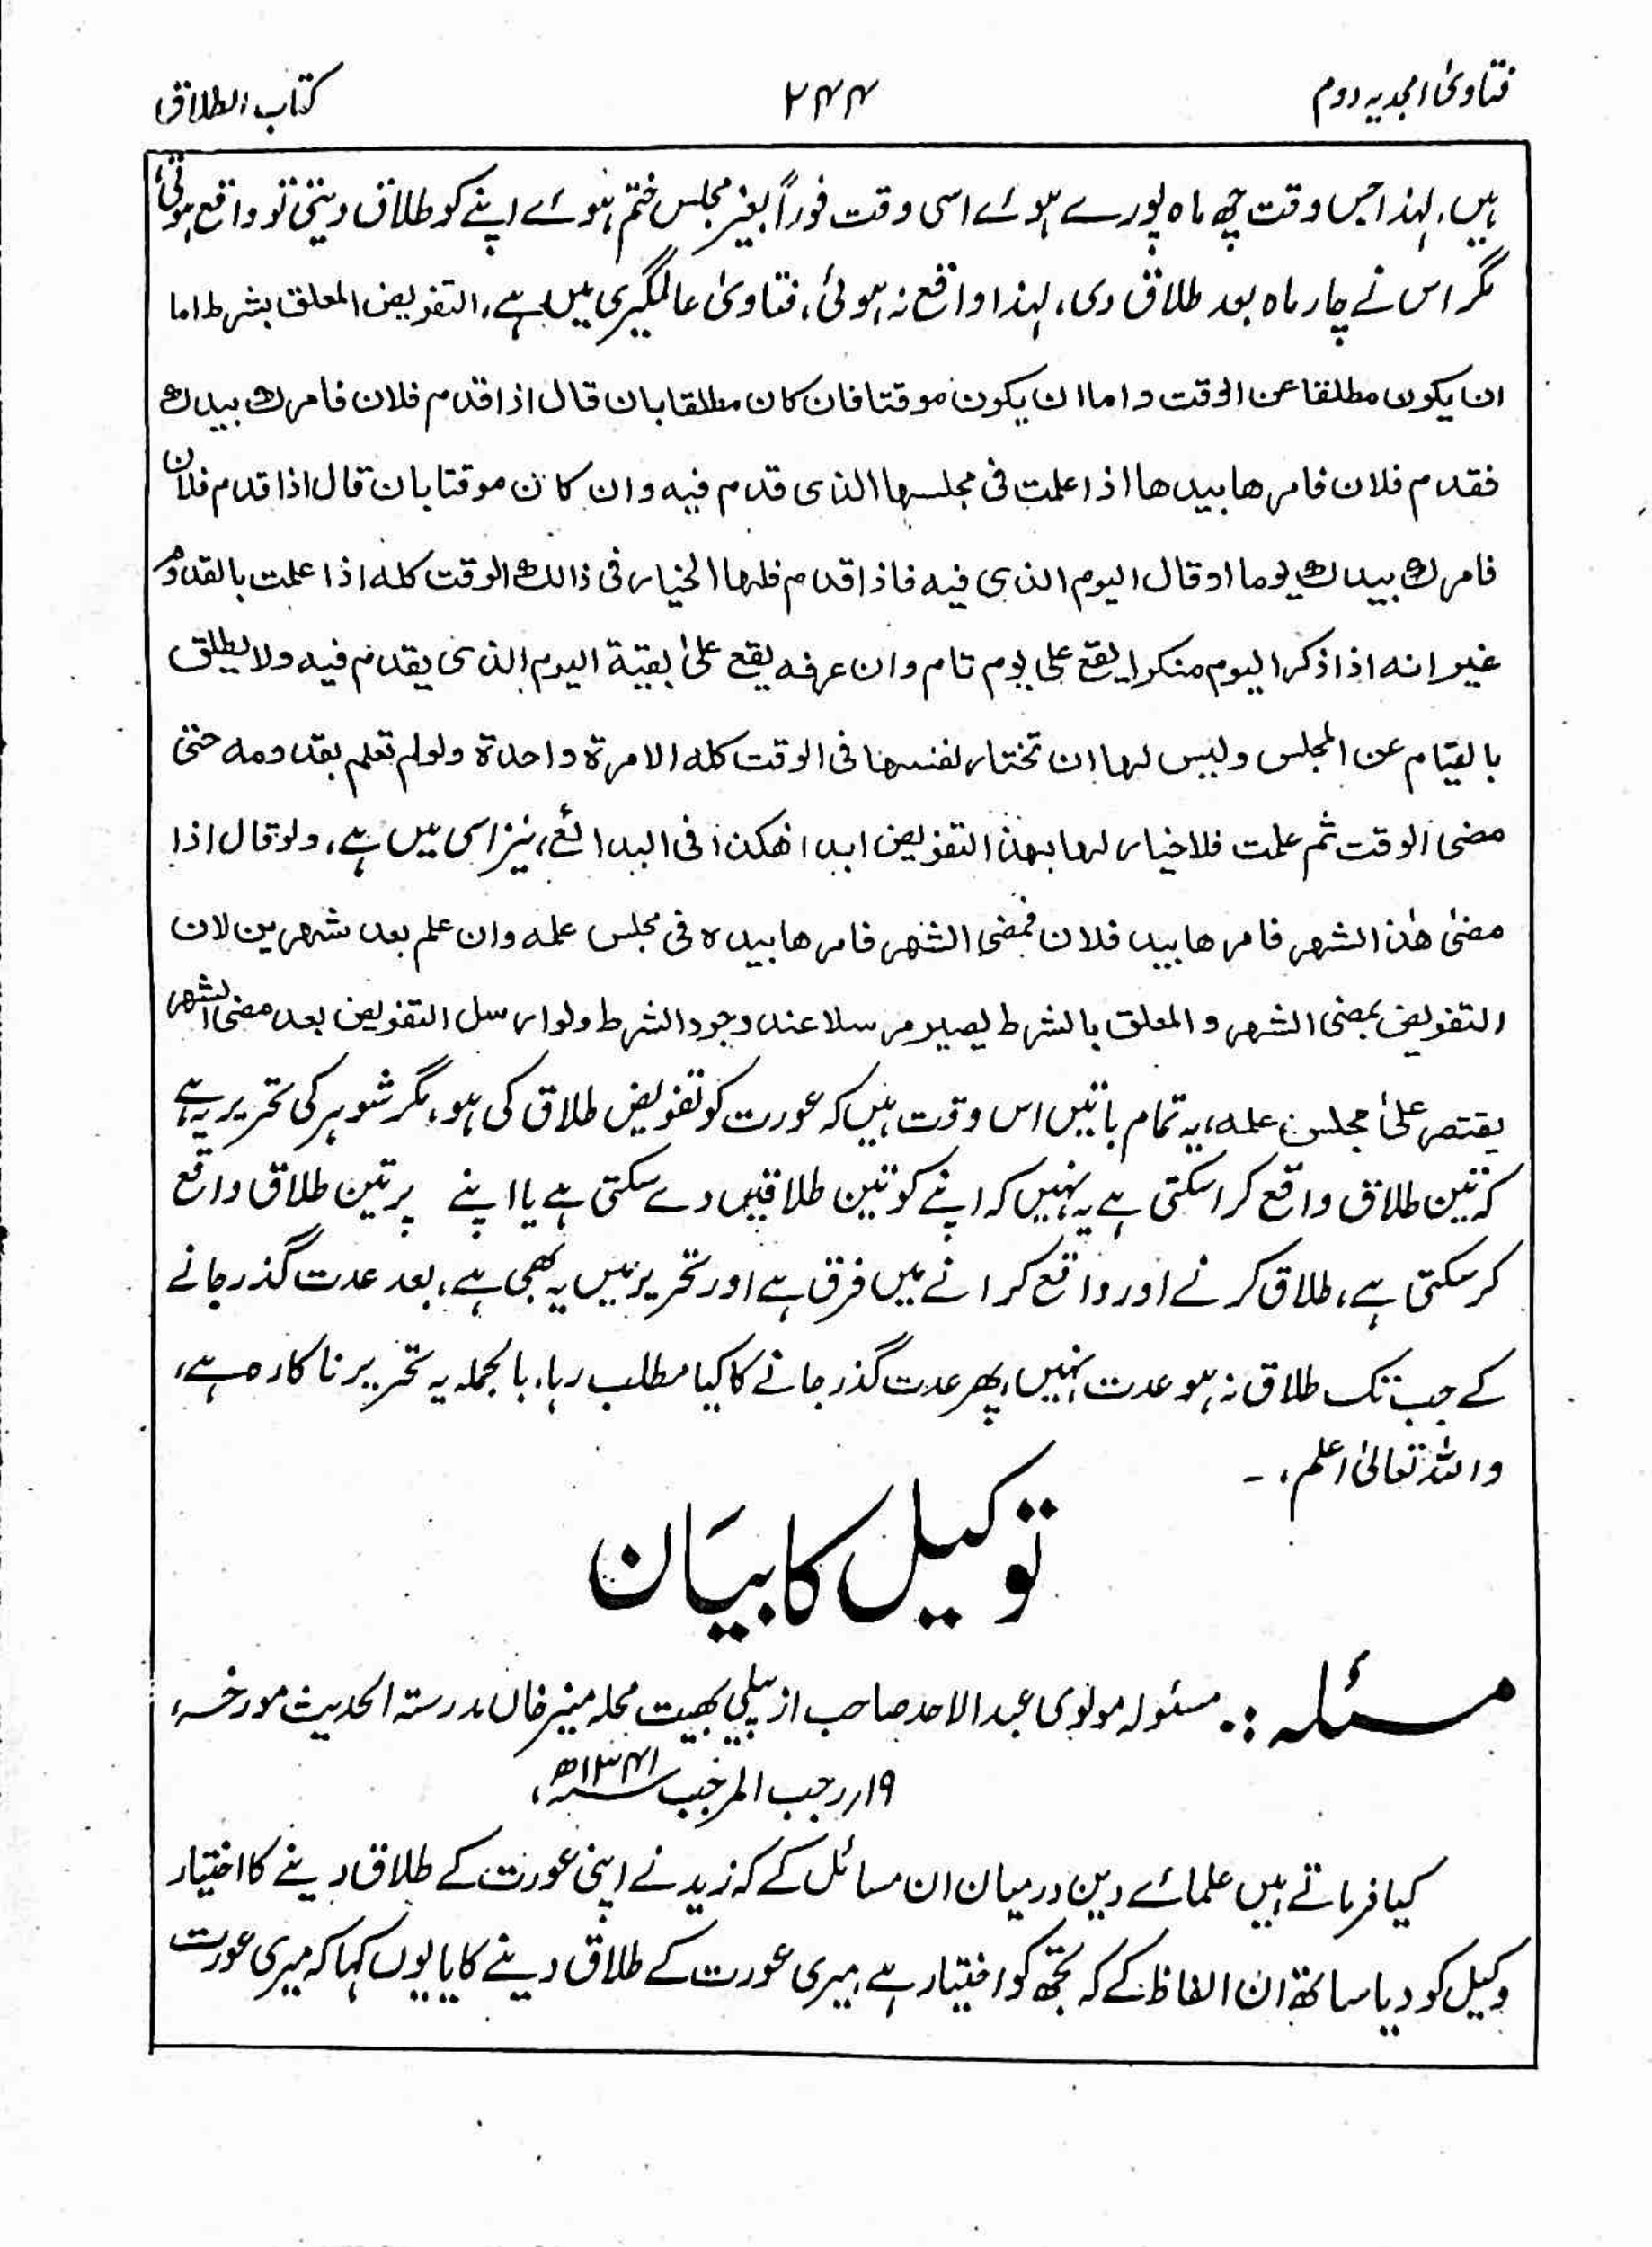 فتاویٰ امجدیہ دوم
۲۴۴
کتاب الطلاق
ہیں، لہذا جس وقت چھ ماہ پورے ہوئے اسی وقت فوراً بغیر مجلس ختم ہوئے اپنے کو طلاق دیتی تو واقع ہوتی،
مگر اس نے چار ماہ بعد طلاق دی، لہذا واقع نہ ہوئی، فتاویٰ عالمگیری میں ہے، التفویض المعلق بشرط اما
ان یکون مطلقا عن الوقت و اما ان یکون موقتا فان کان مطلقا بان قال اذا قدم فلان فامرک بیدک
فقدم فلان فامرها بیدها اذا علمت فی مجلسها الذی قدم فیه و ان کان موقتا بان قال اذا قدم فلان
فامرک بیدک یوما او قال الیوم الذی فیه فاذا قدم فلها الخیار فی ذالک الوقت کله اذا علمت بالقدوم
غیر انه اذا ذکر الیوم منکرا یقع علی یوم تام و ان عرفه یقع علیٰ بقیة الیوم الذی یقدم فیه ولا یطلق
بالقیام عن المجلس ولیس لها ان تختار نفسها فی الوقت کله الا مرة واحدة ولو لم تعلم بقدومه حتی
مضی الوقت ثم علمت فلا خیار لها بهذا التفویض ابدا هٰکذا فی البدائع، نیز اسی میں ہے، ولو قال اذا
مضیٰ هٰذا الشهر فامرها بید فلان فمضی الشهر فامرها بیده فی مجلس علمه وان علم بعد شهرین لان
التفویض بمضی الشهر و المعلق بالشرط یصیر مرسلا عند وجود الشرط ولو ارسل التفویض بعد مضی الشهر
یقتصر علیٰ مجلس علمه، یہ تمام باتیں اس وقت ہیں کہ عورت کو تفویض طلاق کی ہو، مگر شوہر کی تحریر یہ ہے
کہ تین طلاق واقع کراسکتی ہے یہ نہیں کہ اپنے کو تین طلاقیں دے سکتی ہے یا اپنے پر تین طلاق واقع
کرسکتی ہے، طلاق کرنے اور واقع کرانے میں فرق ہے اور تحریر میں یہ بھی ہے، بعد عدت گذر جانے
کے جب تک طلاق نہ ہو عدت نہیں، پھر عدت گذر جانے کا کیا مطلب رہا، بالجملہ یہ تحریر ناکارہ ہے،
واللہ تعالیٰ اعلم، ـ
توکیل کا بیَان
مسئلہ :. مسئولہ مولوی عبد الاحد صاحب از پیلی بھیت محلہ منیر خاں مدرستہ الحدیث مورخہ،
۱۹؍ رجب المرجب ۱۳۴۱ھ،
کیا فرماتے ہیں علمائے دین درمیان ان مسائل کے کہ زید نے اپنی عورت کے طلاق دینے کا اختیار
وکیل کو دیا ساتھ ان الفاظ کے کہ تجھ کو اختیار ہے میری عورت کے طلاق دینے کا یا یوں کہا کہ میری عورت